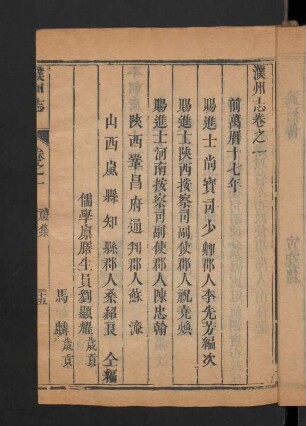 濮州志卷之一
前萬曆十七年
賜進士尚寶司少卿郡人李先芳編次
賜進士陝西按察司副使郡人祝堯煥
賜進士河南按察司副使郡人陳忠翰
陝西鞏昌府通判郡人蘇濂
山西嵐縣知縣郡人桑紹良仝編
儒學廩膳生員劉顯耀歲貢
馬麟歲貢
濮州志
卷之一